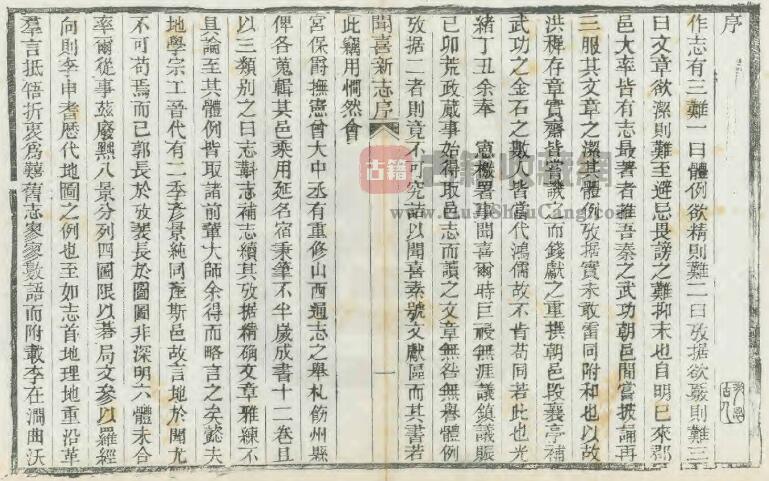 序
作志有三難一曰體例欲精則難二曰攷据欲覈則難三
曰文章欲潔則難至避忌畏謗之難抑末也自明已來郡
邑大率皆有志最著者雖吾秦之武功朝邑間嘗披誦再
三服其文章之潔其體例攷据實未敢雷同附和也以故
洪稚存章實齋皆嘗議之而錢獻之重撰朝邑段襄亭補
武功之金石之數人皆當代鴻儒故不肯苟同若此也光
緒丁丑余奉 憲檄署事聞喜爾時巨祲無涯議鎮議賑
己卯荒政蕆事始得取邑志而讀之文章無咎無譽體例
攷据二者則竟不可究詰以聞喜素號文獻區而其書若
聞喜新志序 一
此竊用憪然會
宮保爵撫憲曾大中丞有重修山西通志之舉札飭州縣
俾各蒐輯其邑乘用延名宿秉筆不半歲成書十二卷且
以三類別之曰志斠志補志續其攷据精确文章雅練不
且論至其體例皆取諸前軰大師余得而略言之矣懿夫
地學宗工晉代有二季彥景純同產斯邑故言地於聞尤
不可苟焉而已郭長於攷裴長於圖圖非深明六體未合
率爾從事茲廢黜八景分列四圖限以碁局文參以羅經
向則李申耆歷代地圖之例也至如志首地理地重沿革
羣言抵牾折衷為難舊志寥寥數語而附載李在澗曲沃
古籍
古籍收藏网
www.GuJiShuCang.com